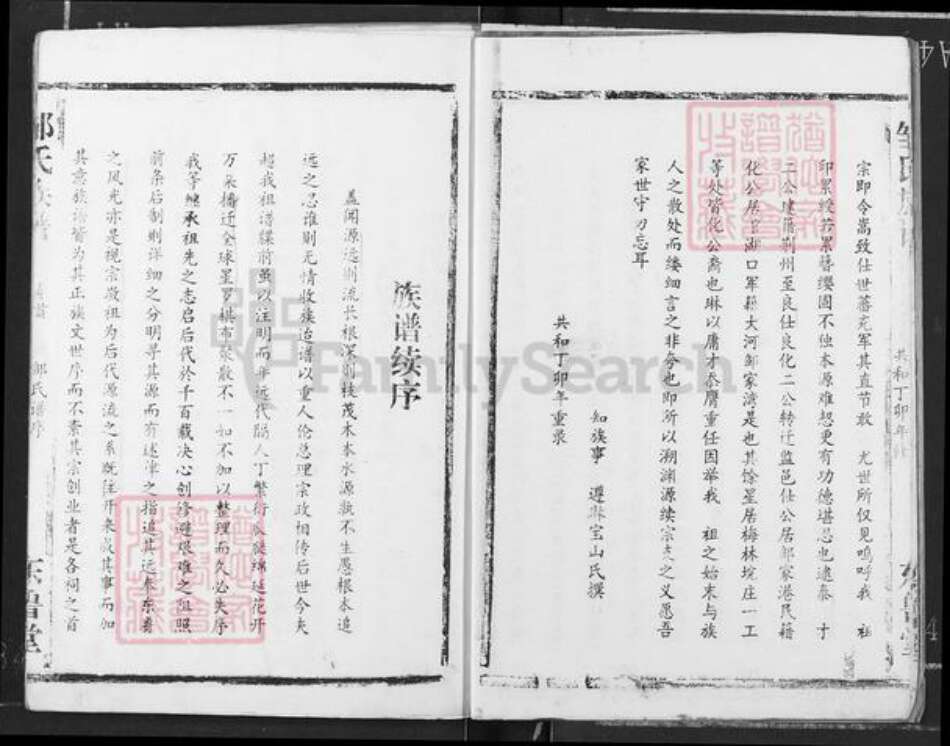 宗即令嵩致仕世蕃充军其直节敢 尤世所仅见呜呼我 祖
印累绶若累簪缨固不独本源难恕更有功德堪思也逮泰 才
二公建籍荆州至良仕良化二公转迁监邑仕公居邹家港民籍
化公居官湖口军籍大河邹家湾是也其馀星居梅林垸庄一工
等处皆化公裔也琳以庸才忝膺重任因举我 祖之始末与族
人之散处而缕细言之非夸也即所以溯渊源续宗支之义愿吾
家世守刃忘耳
知族事 遵琳宝山氏撰
共和丁卯年重录
族谱续序
盖闻源远则流长根深则枝茂木本水源孰不生愚根本追
远之忍谁则无情收族追谱以重人伦总理宗政相传后世今夫
超我祖谱牒前虽以注明而年远代隔人丁繁衍瓜瓞绵延花开
万朵播迁全球星罗棋布聚散不一如不加以整理而久必失序
我等继承祖先之志启后代于千百载决心创修避艰难之阻照
前条后制则详细之分明寻其源而有述津之指追其远奉东鲁
之风光亦是视宗敬祖为后代源流之系既往开来成其事而加
其意族谱皆为其正族文世序而不紊其宗创业者是各祠之首
邹氏族谱
邹氏谱序
东鲁堂
共和丁卯年
FamilySearch